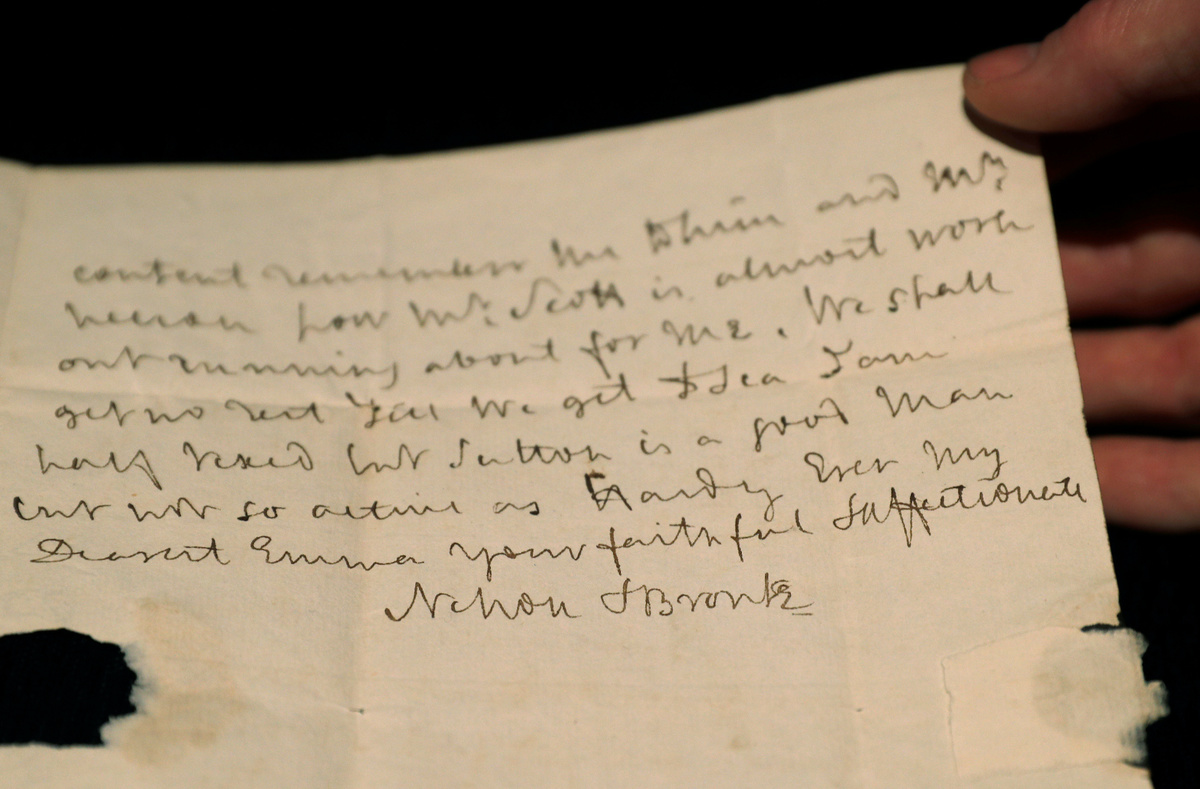 content remember me to him and Mrs
Nelson poor Mr. Scott is almost worn
out running about for me. We shall
get no rest till we get to sea I am
half vexed but Sutton is a good Man
but not so active as Hardy Ever My
Dearest Emma your faithful & affectionate
Nelson & Bronte